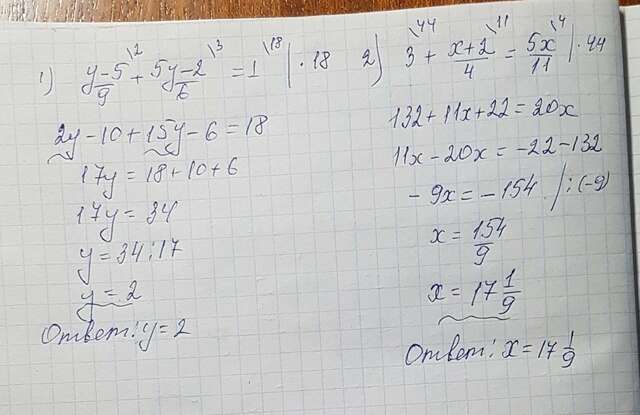 1) (y-5)/9 \2 + (5y-2)/6 \3 = 1 \18 | · 18
2y - 10 + 15y - 6 = 18
17y = 18 + 10 + 6
17y = 34
y = 34 : 17
y = 2
Ответ: y = 2
2) 3 \44 + (x+2)/4 \11 = 5x/11 \4 | · 44
132 + 11x + 22 = 20x
11x - 20x = -22 - 132
-9x = -154 | : (-9)
x = 154/9
x = 17 1/9
Ответ: x = 17 1/9